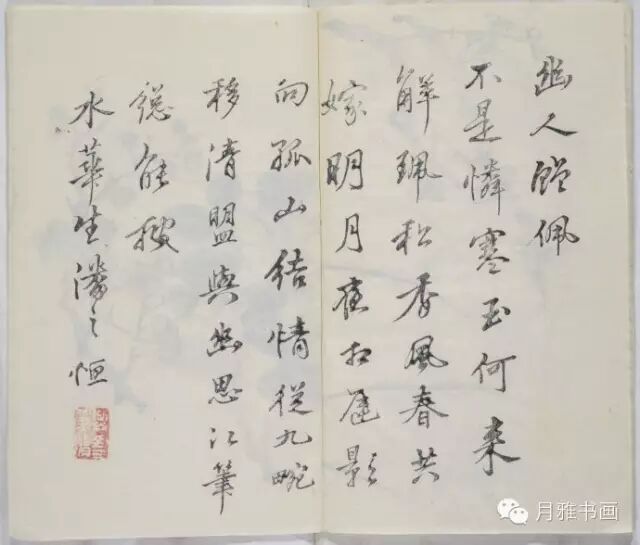 幽人贈佩
不是憐寒玉何來
解珮香風春共
嫁明月夜相遲影
向孤山結情從九畹
移清盟與幽思江筆
總能
水華生潘之恒
月雅书画